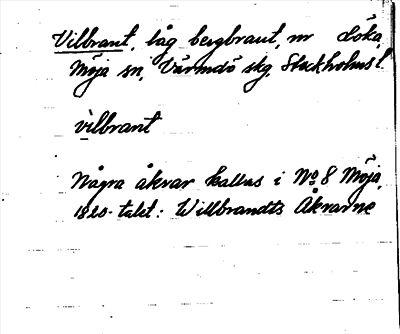 Vilbrant, låg bergbrant, nr Löka,
Möja sn, Värmdö skg, Stockholms l.
vilbrant
Några åkrar kallas i No 8 Möja,
1820-talet: Willbrandts Åkrarne